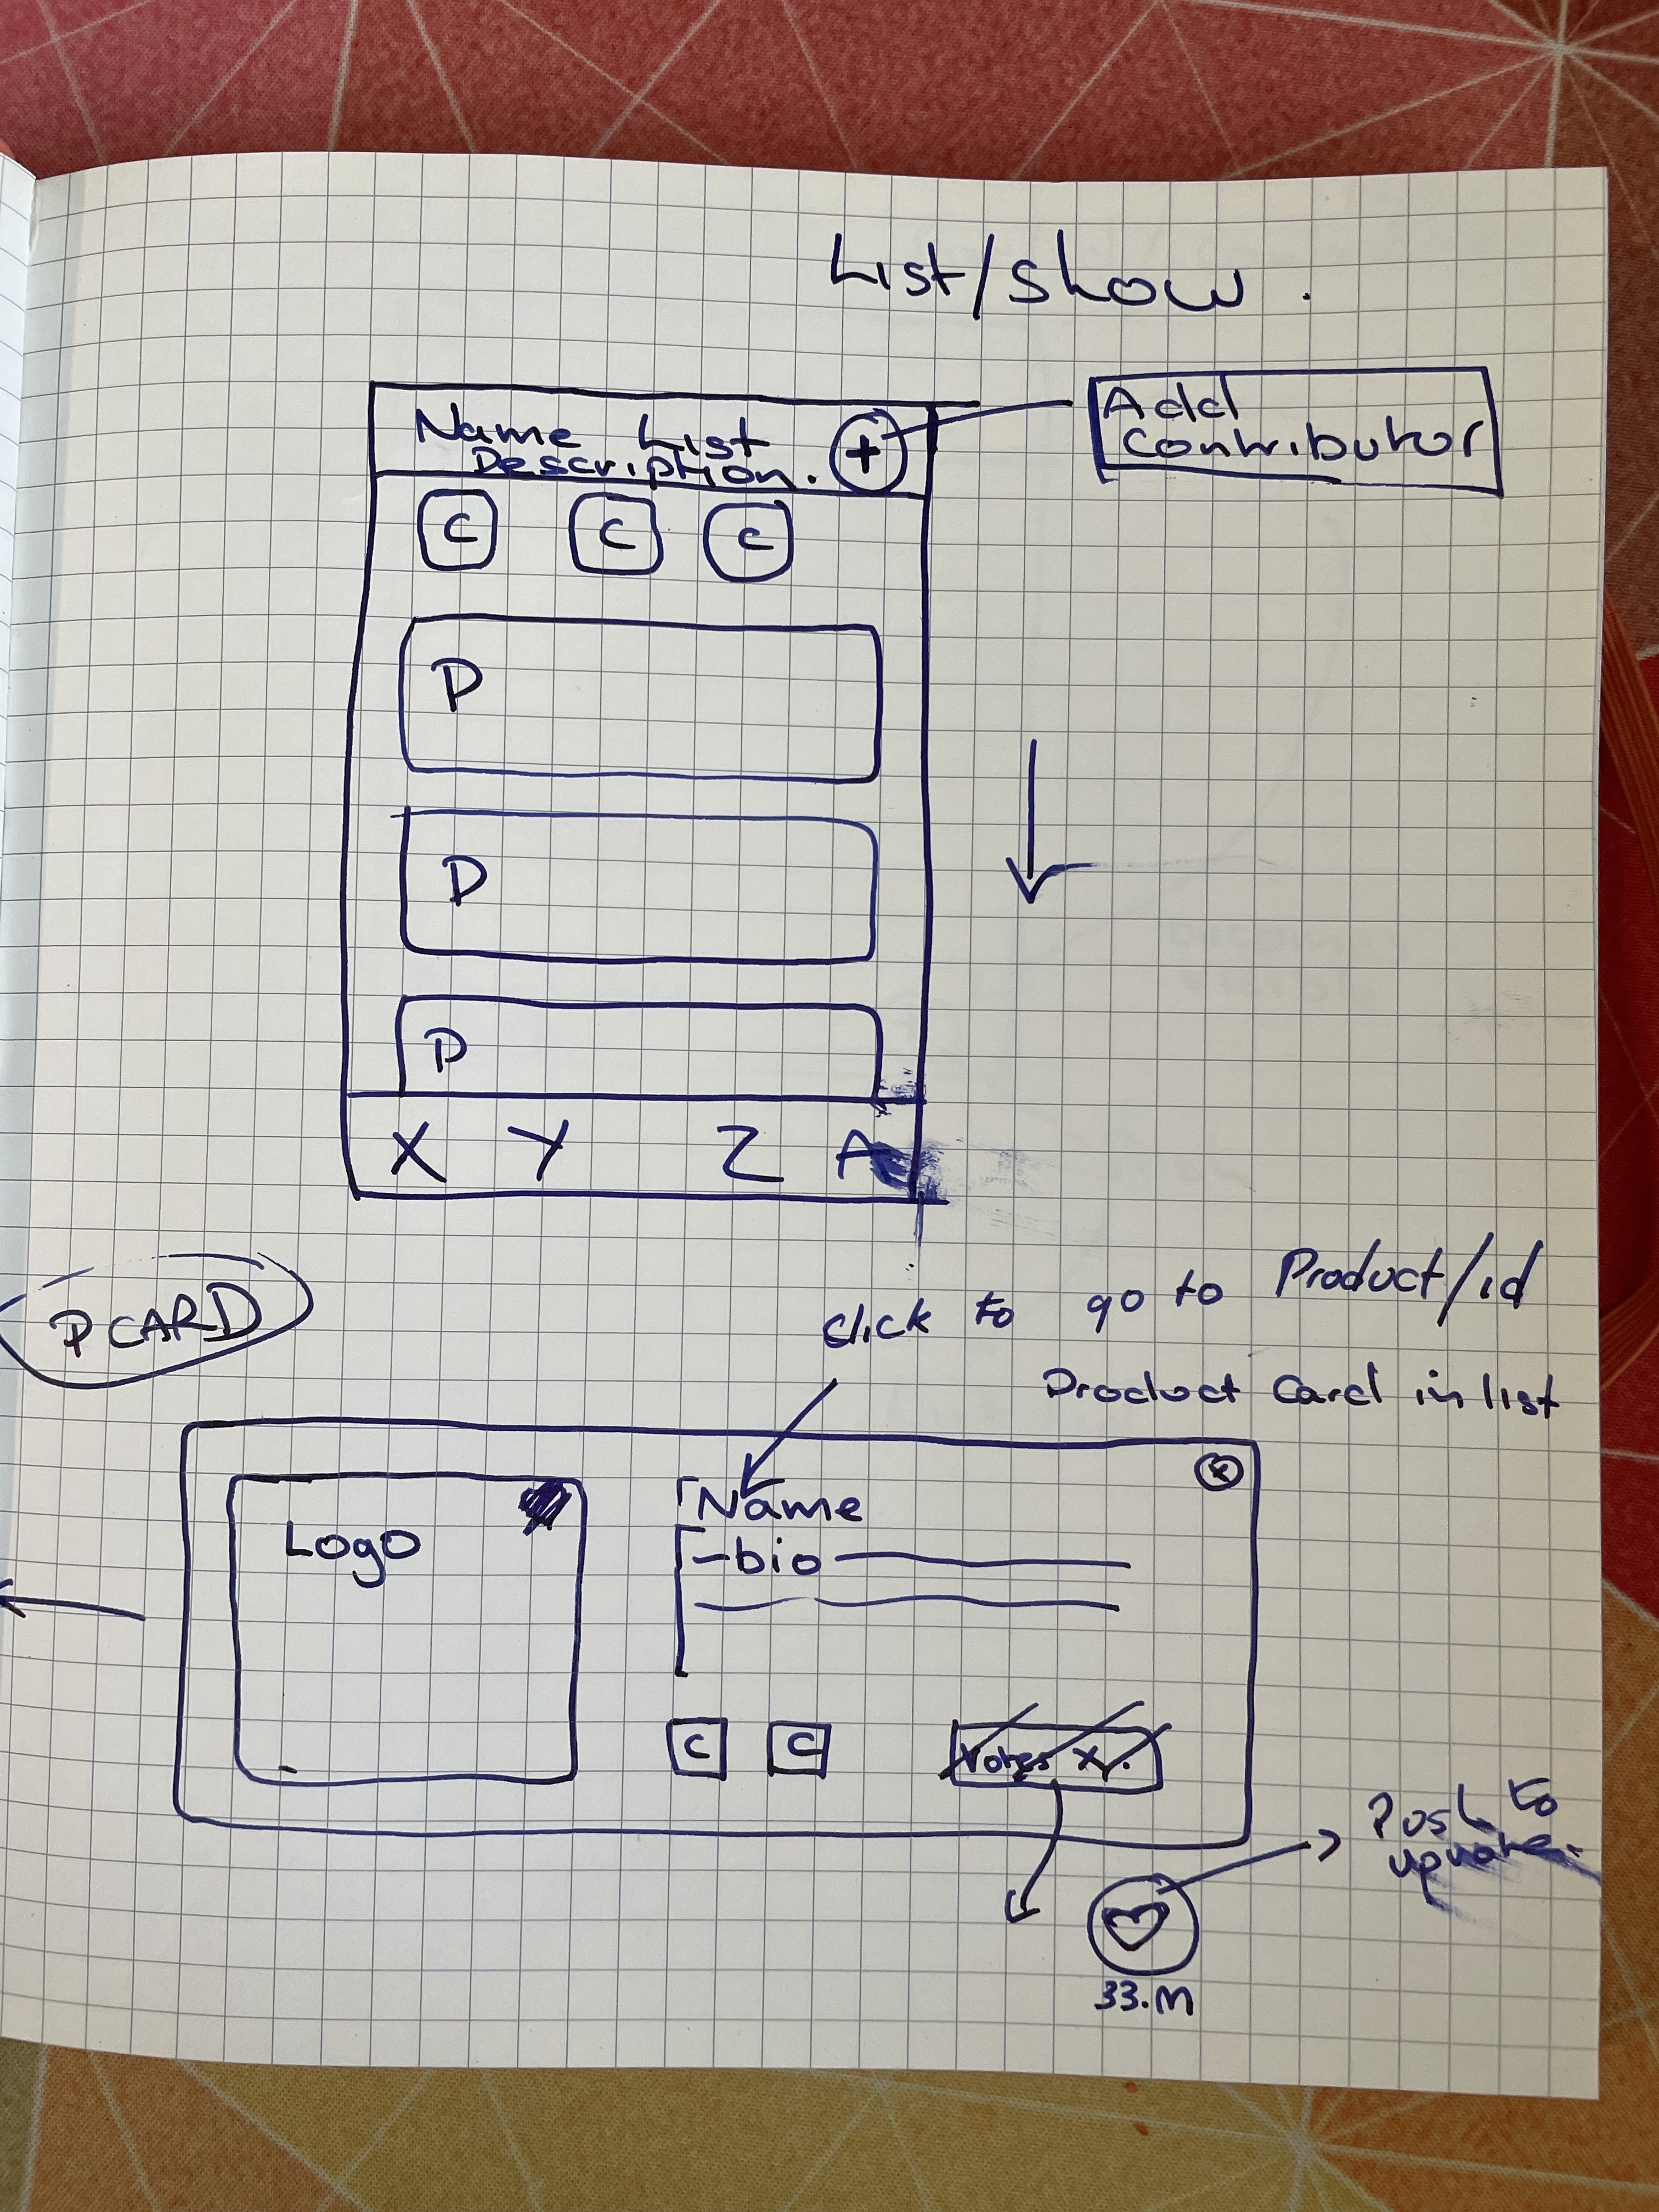 List/show.
Name List
Description.
+
Add
Contributor
C C C
P
P
P
X Y Z A
P CARD
click to go to Product/id
Product Card in list
x
Logo
Name
-bio
C C
Votes
33.M
Push to
upvote.